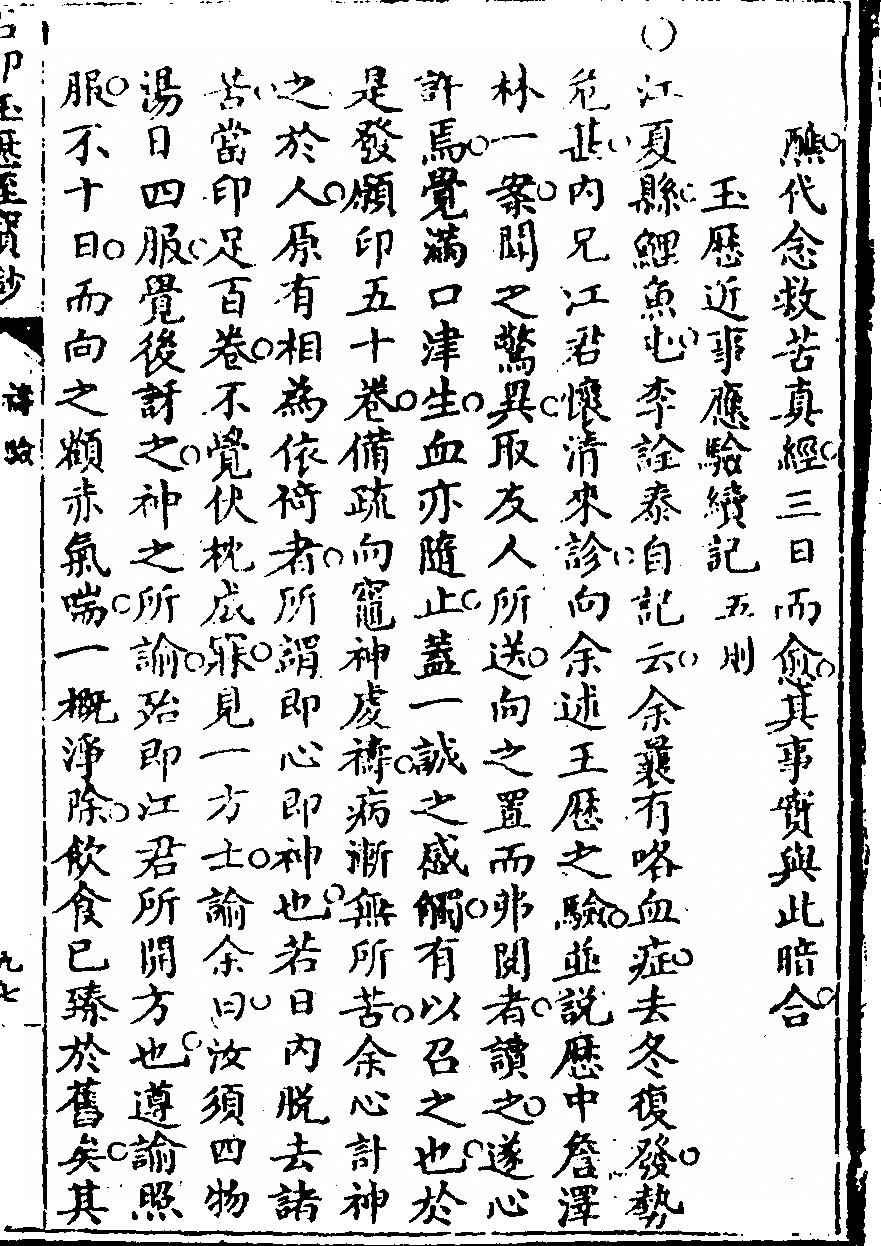 醮代念救苦真經三日而愈其事實與此暗合
玉歷近事應驗續記 五則
○江夏縣鯉魚屯李詮泰自記云余曩有咯血症去冬復發勢
危甚内兄江君懷清來診向余述玉歷之驗並說歷中詹澤
林一案聞之驚異取友人所送向之置而弗閱者讀之遂心
許焉覺滿口津生血亦隨止蓋一誠之感觸有以召之也於
是發願印五十卷備疏向竈神虔禱病漸無所苦余心計神
之於人原有相為依倚者所謂即心即神也若日内脫去諸
苦當印足百卷不覺伏枕成寐見一方士諭余曰汝須四物
湯日四服覺後訝之神之所諭殆即江君所開方也遵諭照
服不十日而向之顴赤氣喘一概淨除飲食已臻於舊矣其
石印玉歷至寶鈔
禱驗
九七